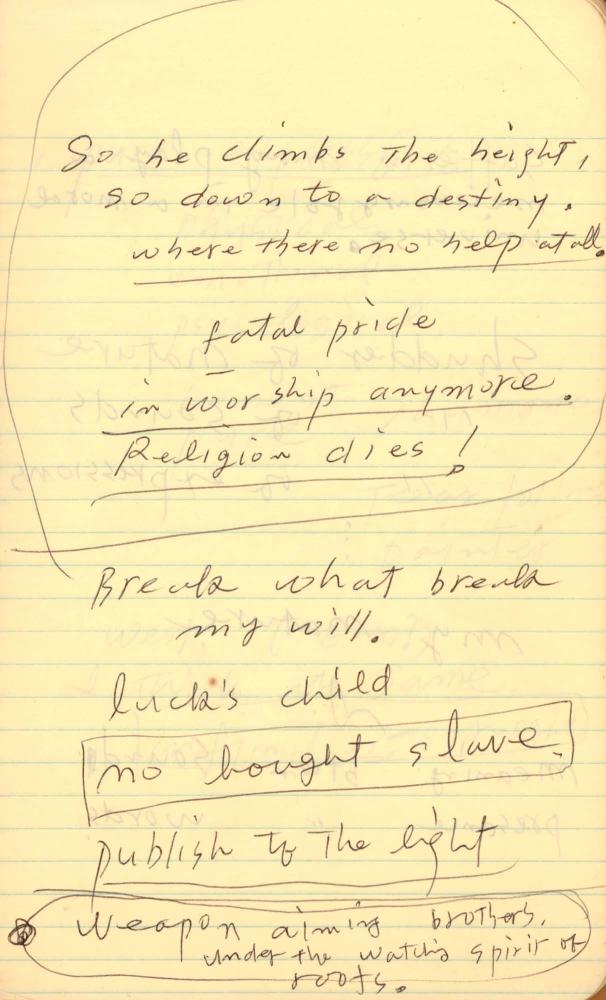 So he climbs the height,
so down to a destiny.
where there no help at all.
fatal pride
in worship anymore.
Religion dies!
Break what break
my will.
luck's child
no bought slave.
publish to the light
weapon aiming brothers,
under the watching spirit of
roots.